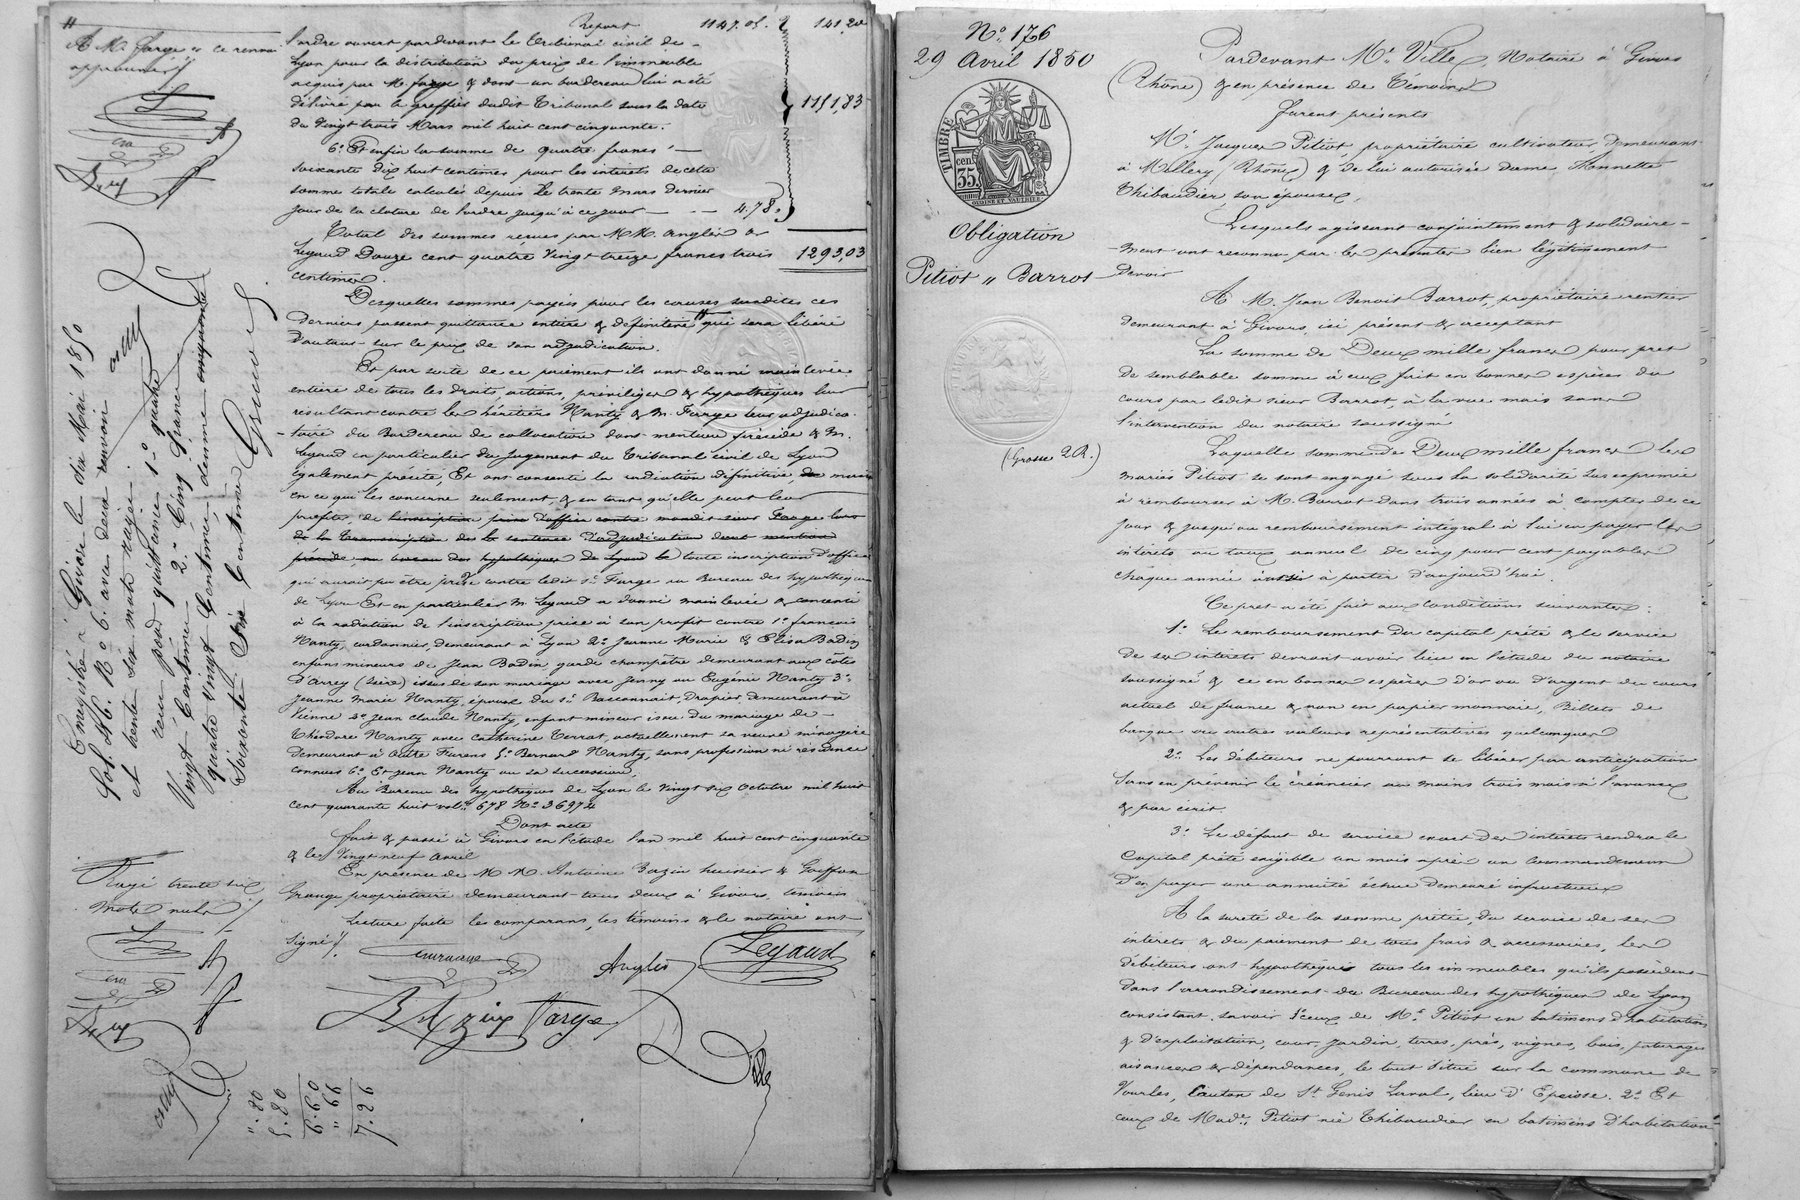 Report 1147.05 141,20
A M. Farge " ce renvoi
approuvé
l'ordre ouvert pardevant le Tribunal civil de
Lyon pour la distribution du prix de l'immeuble
acquis par M. Farge & dont un bordereau lui a été
délivré par le greffier dudit Tribunal sous la date
du Vingt trois Mars mil huit cent cinquante. 1151,83
6° Et enfin la somme de quatre francs
soixante dix huit centimes pour les intérêts de cette
somme totale calculés depuis le trente mars dernier
jour de la cloture de l'ordre jusqu'à ce jour 4.78
Total des sommes reçues par MM. Anglès &
Legaud Douze cent quatre Vingt treize francs trois 1293,03
centimes.
Desquelles sommes payées pour les causes susdites ces
derniers passent quittance entière & définitive qui sera libéré
d'autant sur le prix de son adjudication.
Et par suite de ce paiement ils ont donné mainlevée
entière de tous les droits, actions, privilèges & hypothèques leur
résultant contre les héritiers Nanty & M. Farge leur adjudica-
-taire du Bordereau de collocation dont mention précède & M.
Legaud en particulier du Jugement du Tribunal civil de Lyon
également précité, Et ont consenti la radiation définitive, mais
en ce qui les concerne seulement, & en tant qu'elle peut leur
profiter, de l'inscription prise d'office contre mondit sieur Farge lors
de la transcription de la sentence d'adjudication dont mention
précède, au bureau des hypothèques de Lyon la toute inscription d'office
qui aurait pu être prise contre ledit Sr. Farge au Bureau des hypothèques
de Lyon Et en particulier M. Legaud a donné mainlevée & consenti
à la radiation de l'inscription prise à son profit contre 1° francois
Nanty, cordonnier, demeurant à Lyon 2° Jeanne Marie & Elisa Badin
enfans mineurs de Jean Badin garde champêtre demeurant aux côtes
d'Arrey (Isère) issus de son mariage avec Jenny ou Eugénie Nanty 3°
Jeanne Marie Nanty, épouse du Sr. Bassonnait, Drapier, demeurant à
Vienne 4° Jean Claude Nanty, enfant mineur issu du mariage de
Théodore Nanty avec Catherine Terrat, actuellement sa veuve ménagère
demeurant à Outre Furens 5° Bernard Nanty, sans profession ni résidence
connus 6° Et Jean Nanty ou sa succession,
Au Bureau des hypothèques de Lyon le Vingt six Octobre mil huit
cent quarante huit vol. 678 No. 36974
Dont acte
fait & passé à Givors en l'étude l'an mil huit cent cinquante
& le Vingt neuf avril
En présence de MM. Antoine Bazin huissier & Goiffon
Grange propriétaire demeurant tous deux à Givors témoins
Lecture faite les comparans, les témoins & le notaire ont
signé
Anglès Legaud
Bazin Farge
Ville
Rayé trente six
mots nuls
Enregistré à Givors le dix Mai 1850
fol. 46. R. c. 6. avec deux renvois
et trente six mots rayés.
reçu pour quittance 1° quatre
Vingt Centimes 2° Cinq francs
quatre Vingt Centimes, décime
Soixante Six Centimes
".80
5.80
6.60
".66
7.26
No. 176
29 Avril 1850
TIMBRE
cen.
35
Obligation
Pitiot " Barrot
(Grosse 2 R.)
Pardevant Me. Ville, Notaire à Givors
(Rhône) & en présence de Témoins
Furent présents
Mr. Jacques Pitiot, propriétaire cultivateur, demeurant
à Millery (Rhône) & de lui autorisée dame Annette
Thibaudier, son épouse,
Lesquels agissant conjointement & solidaire-
-ment ont reconnu par les présentes bien légitimement
devoir
A M. Jean Benoit Barrot, propriétaire rentier
demeurant à Givors, ici présent & acceptant
La somme de Deux mille francs pour prêt
de semblable somme à eux fait en bonnes espèces du
cours par ledit sieur Barrot, à la vue mais sans
l'intervention du notaire soussigné
Laquelle somme de Deux mille francs les
mariés Pitiot se sont engagé sous la solidarité sus exprimée
à rembourser à M. Barrot dans trois années à compter de ce
jour & jusqu'au remboursement intégral à lui en payer les
intérêts au taux annuel de cinq pour cent payables
chaque année à partir d'aujourd'hui.
Ce prêt a été fait aux conditions suivantes:
1° Le remboursement du capital prêté & le service
de ses intérêts devront avoir lieu en l'étude du notaire
soussigné & ce en bonnes espèces d'or ou d'argent du cours
actuel de france & non en papier monnaie, Billets de
banque ou autres valeurs représentatives quelconques
2° Les débiteurs ne pourront se libérer par anticipation
sans en prévenir le créancier au moins trois mois à l'avance
& par écrit
3° Le défaut de service exact des intérêts rendra le
Capital prêté exigible un mois après un commandement
d'en payer une annuité échue demeuré infructueux
A la sureté de la somme prêtée, du service de ses
intérêts & du paiement de tous frais & accessoires, les
débiteurs ont hypothéqué tous les immeubles qu'ils possèdent
dans l'arrondissement du Bureau des hypothèques de Lyon
consistant savoir 1° ceux de Mr. Pitiot en batimens d'habitation
& d'exploitation, cour, jardin, terres, prés, vignes, bois, paturages
aisances & dépendances, le tout situé sur la commune de
Vourles, Canton de St. Genis Laval, lieu d'Epeisse. 2° Et
ceux de Made. Pitiot née Thibaudier en batimens d'habitation